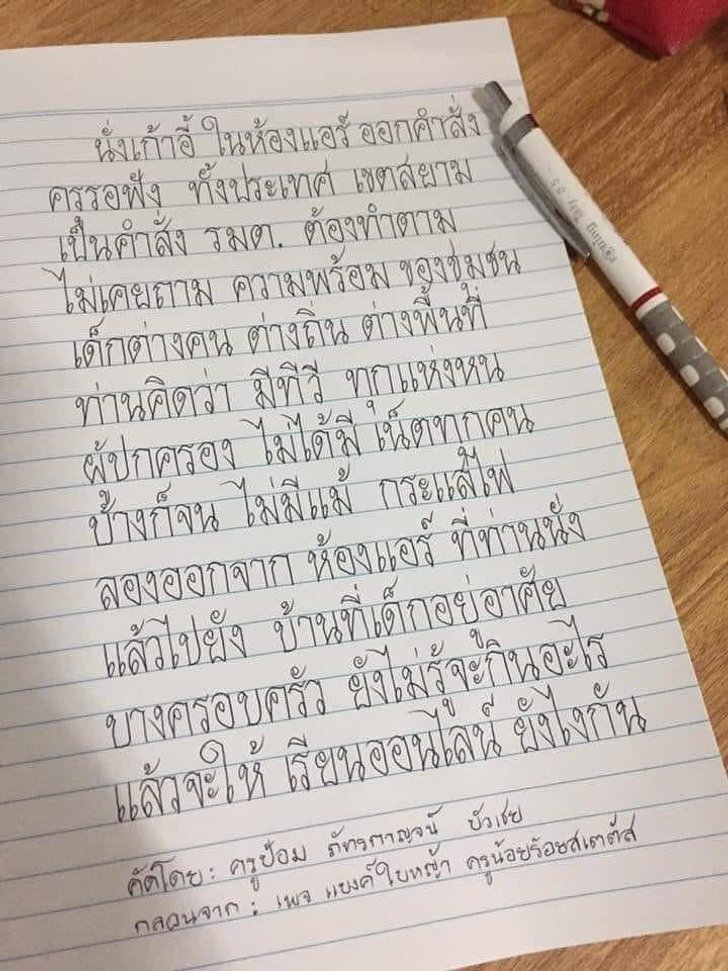 นั่งเก้าอี้ ในห้องแอร์ ออกคำสั่ง
ครูรอฟัง ทั้งประเทศ เขตสยาม
เป็นคำสั่ง รมต. ต้องทำตาม
ไม่เคยถาม ความพร้อม ของชุมชน
เด็กต่างคน ต่างถิ่น ต่างพื้นที่
ท่านคิดว่า มีทีวี ทุกแห่งหน
ผู้ปกครอง ไม่ได้มี เน็ตทุกคน
บ้างก็จน ไม่มีแม้ กระแสไฟ
ลองออกจาก ห้องแอร์ ที่ท่านนั่ง
แล้วไปยัง บ้านที่เด็กอยู่อาศัย
บางครอบครัว ยังไม่รู้จะกินอะไร
แล้วจะให้ เรียนออนไลน์ ยังไงกัน
คัดโดย : ครูป้อม ภัทรกาญจน์ บัวเชย
กลอนจาก : เพจ แบงค์ใบหญ้า ครูน้อยร้อยสเตตัส
rotring Tikky 0.5